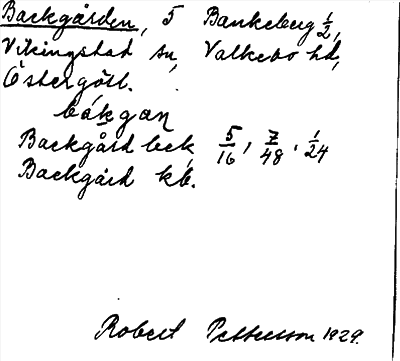 Backgården, 5 Bankeberg 1/2,
Vikingstad sn, Valkebo hd,
Östergötl.
bákgan
Backgård beck, 5/16, 7/48, 1/24
Backgård kb.
Robert Pettersson 1929.